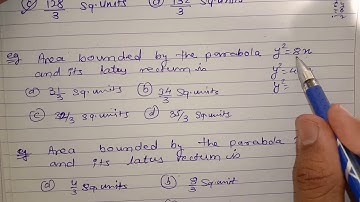 c) 128/3 Sq.units d) 132/3 Sq.units
eg Area bounded by the parabola y²=8x
and its latus rectum is y²=4
(a) 31/3 Sq.units (b) 34/3 Sq.units y²=
(c) 32/3 Sq.units (d) 35/3 Sq.units
eg Area bounded by the parabola
and its latus rectum is
(a) 4/3 Sq.units (b) 8/3 Sq.unit